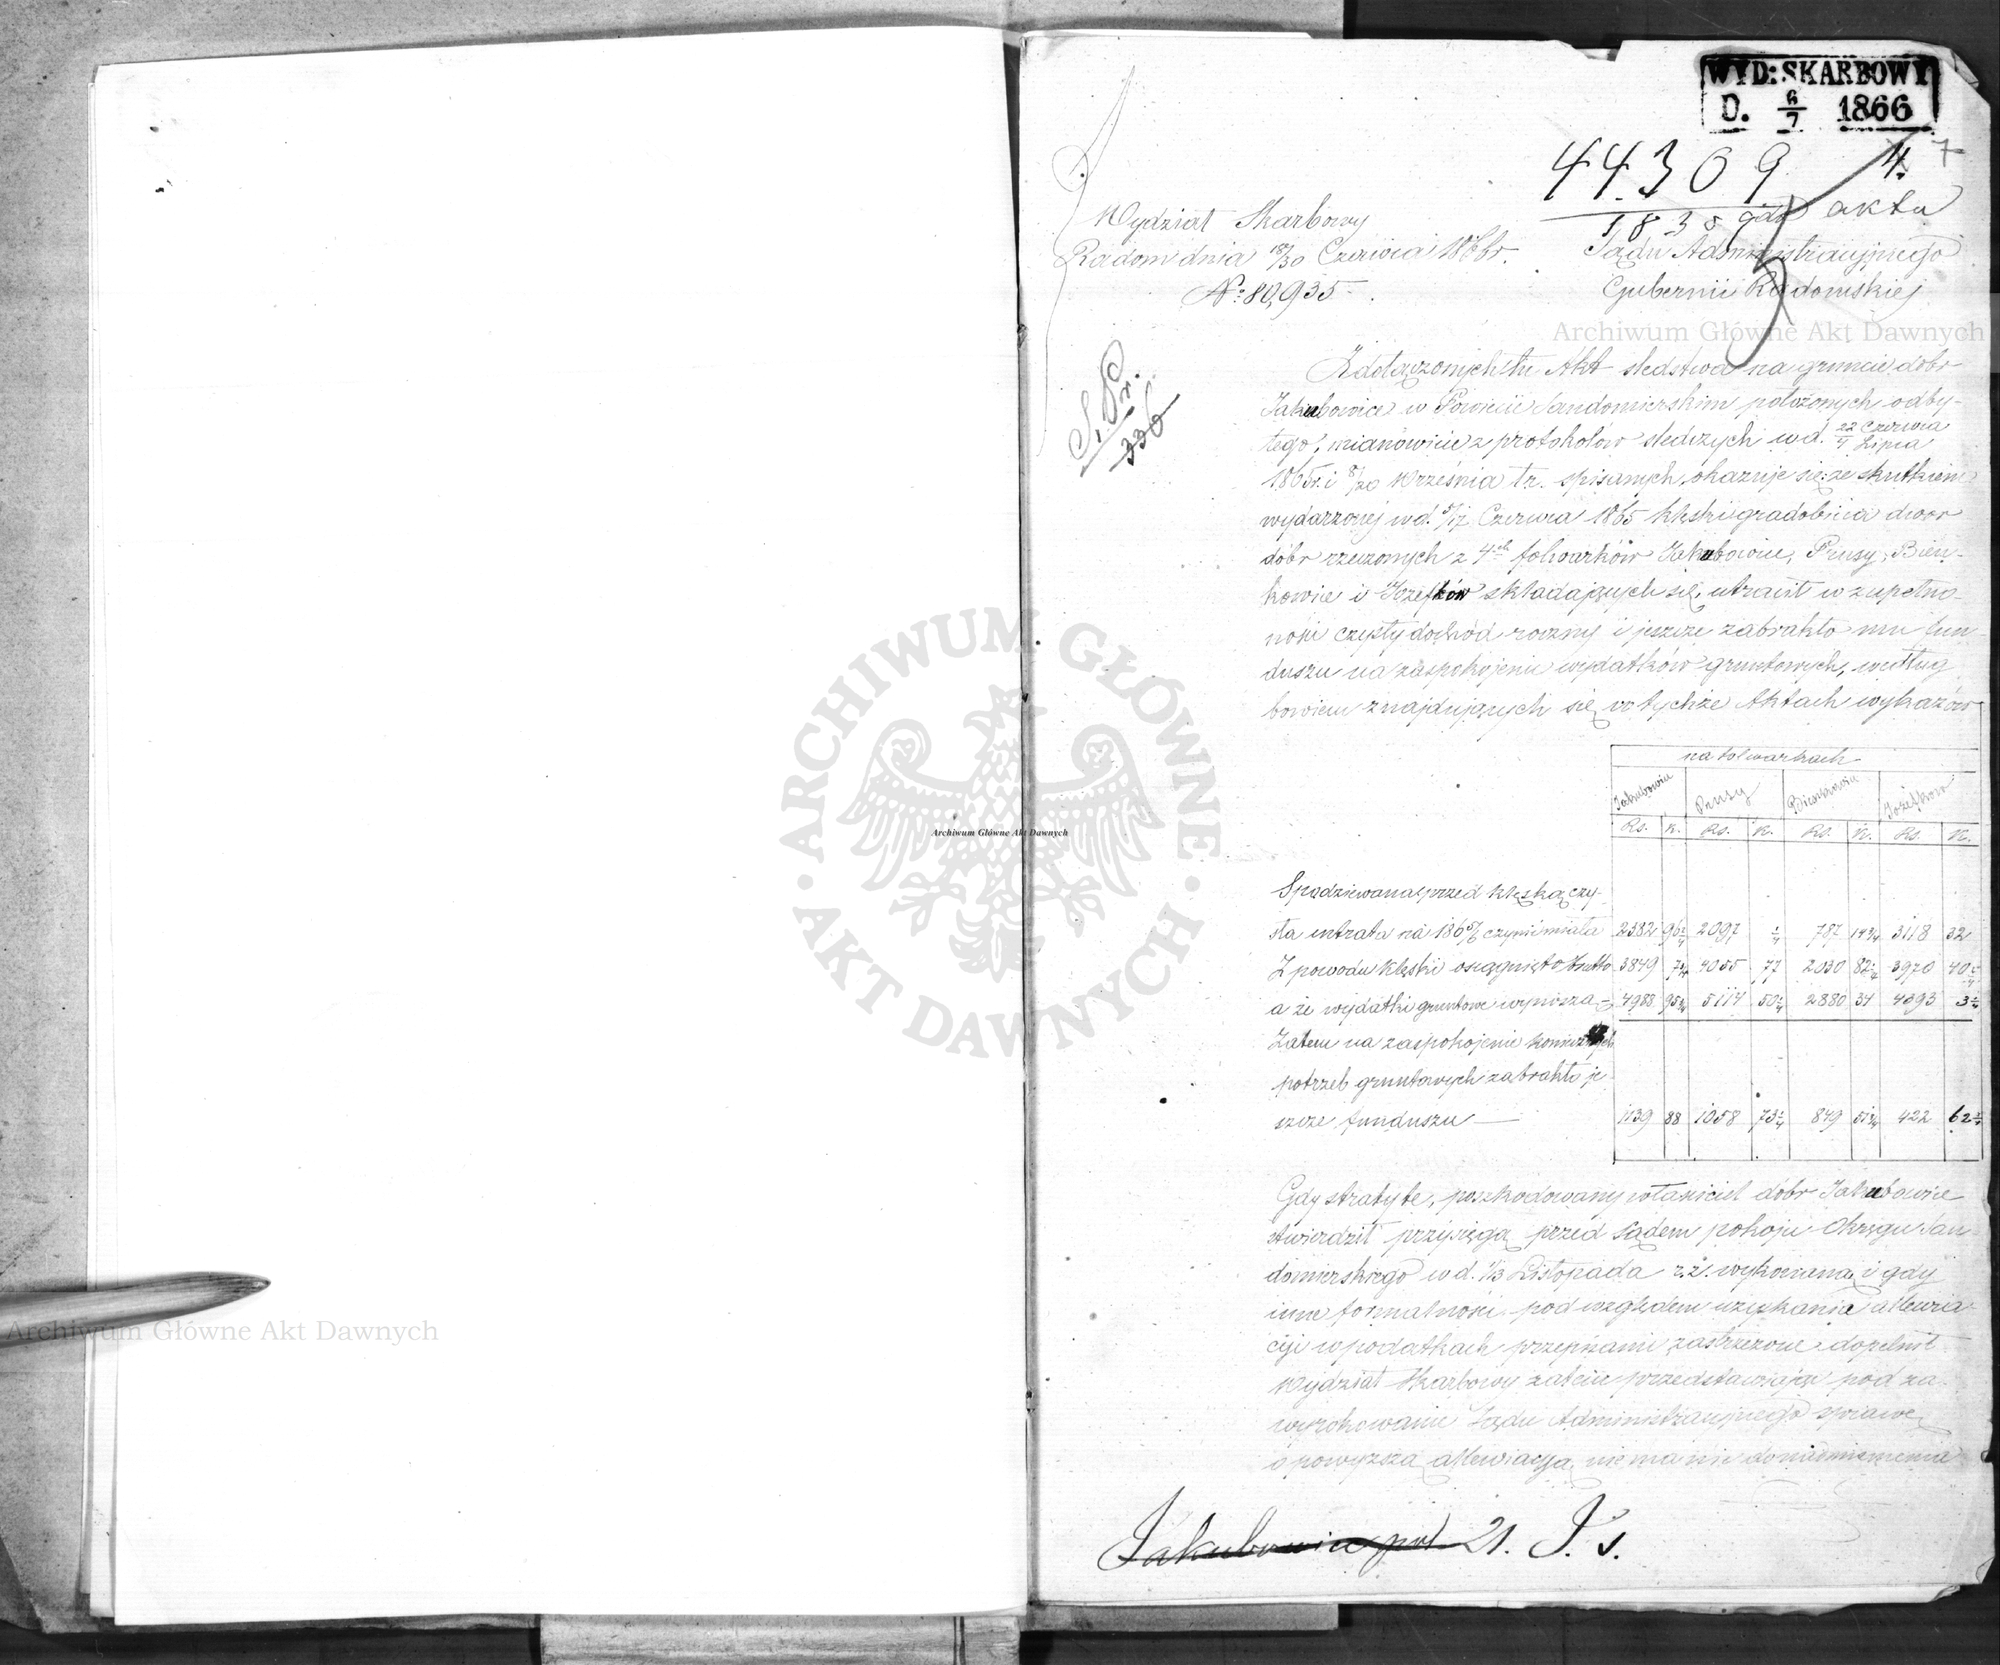 WYD: SKARBOWY
D. 6/7 1866
44309 4. 7
1835 akta
Wydział Skarbowy
Radom dnia 18/30 Czerwca 1866 r. Sądu Administracyjnego
№ 80,935. Gubernii Radomskiej
Archiwum Główne Akt Dawnych
S. Pr.
336
Z dołączonych tu Akt śledztwa na gruncie dóbr
Jakubowice w Powiecie Sandomierskim położonych odby-
tego, mianowicie z protokołów śledczych w d. 22 Czerwca/4 Lipca
1865 r. i 8/20 Września t. r. spisanych, okazuje się: że skutkiem
wydarzonej w d. 5/17 Czerwca 1865 klęski gradobicia dwór
dóbr rzeczonych z 4ch folwarków Jakubowice, Prusy, Bień-
kowice i Józefków składających się, utracił w zupełno-
ności czysty dochód roczny i jeszcze zabrakło mu fun-
duszu na zaspokojenie wydatków gruntowych, według
bowiem znajdujących się w tychże Aktach wykazów
na folwarkach
Jakubowice Prusy Bieńkowice Józefków
Rs. K. Rs. K. Rs. K. Rs. K.
Spodziewana przed klęską czy-
sta intrata na 1865/6 czynić miała 2382 96 2097 787 14 3118 32
Z powodu klęski osiągnięto brutto 3849 7 4055 77 2030 82 3970 40
a że wydatki gruntowe wynoszą 4988 95 5114 50 2880 34 4393 3
Zatem na zaspokojenie koniecznych
potrzeb gruntowych zabrakło je-
szcze funduszu — 1139 88 1058 73 849 51 422 62
Gdy stratę tę, poszkodowany właściciel dóbr Jakubowice
stwierdził przysięgą przed Sądem pokoju Okręgu San-
domierskiego w d. 1/13 Listopada r. z. wykonaną i gdy
inne formalności pod względem uzyskania allewia-
cyi w podatkach przepisami zastrzeżone dopełnił
Wydział Skarbowy zatem przedstawiając pod za-
wyrokowanie Sądu Administracyjnego sprawę
o powyższą allewiację, nie ma nic do nadmienienia
Jakubowice pow 21. J. s.
ARCHIWUM GŁÓWNE AKT DAWNYCH
Archiwum Główne Akt Dawnych
Archiwum Główne Akt Dawnych